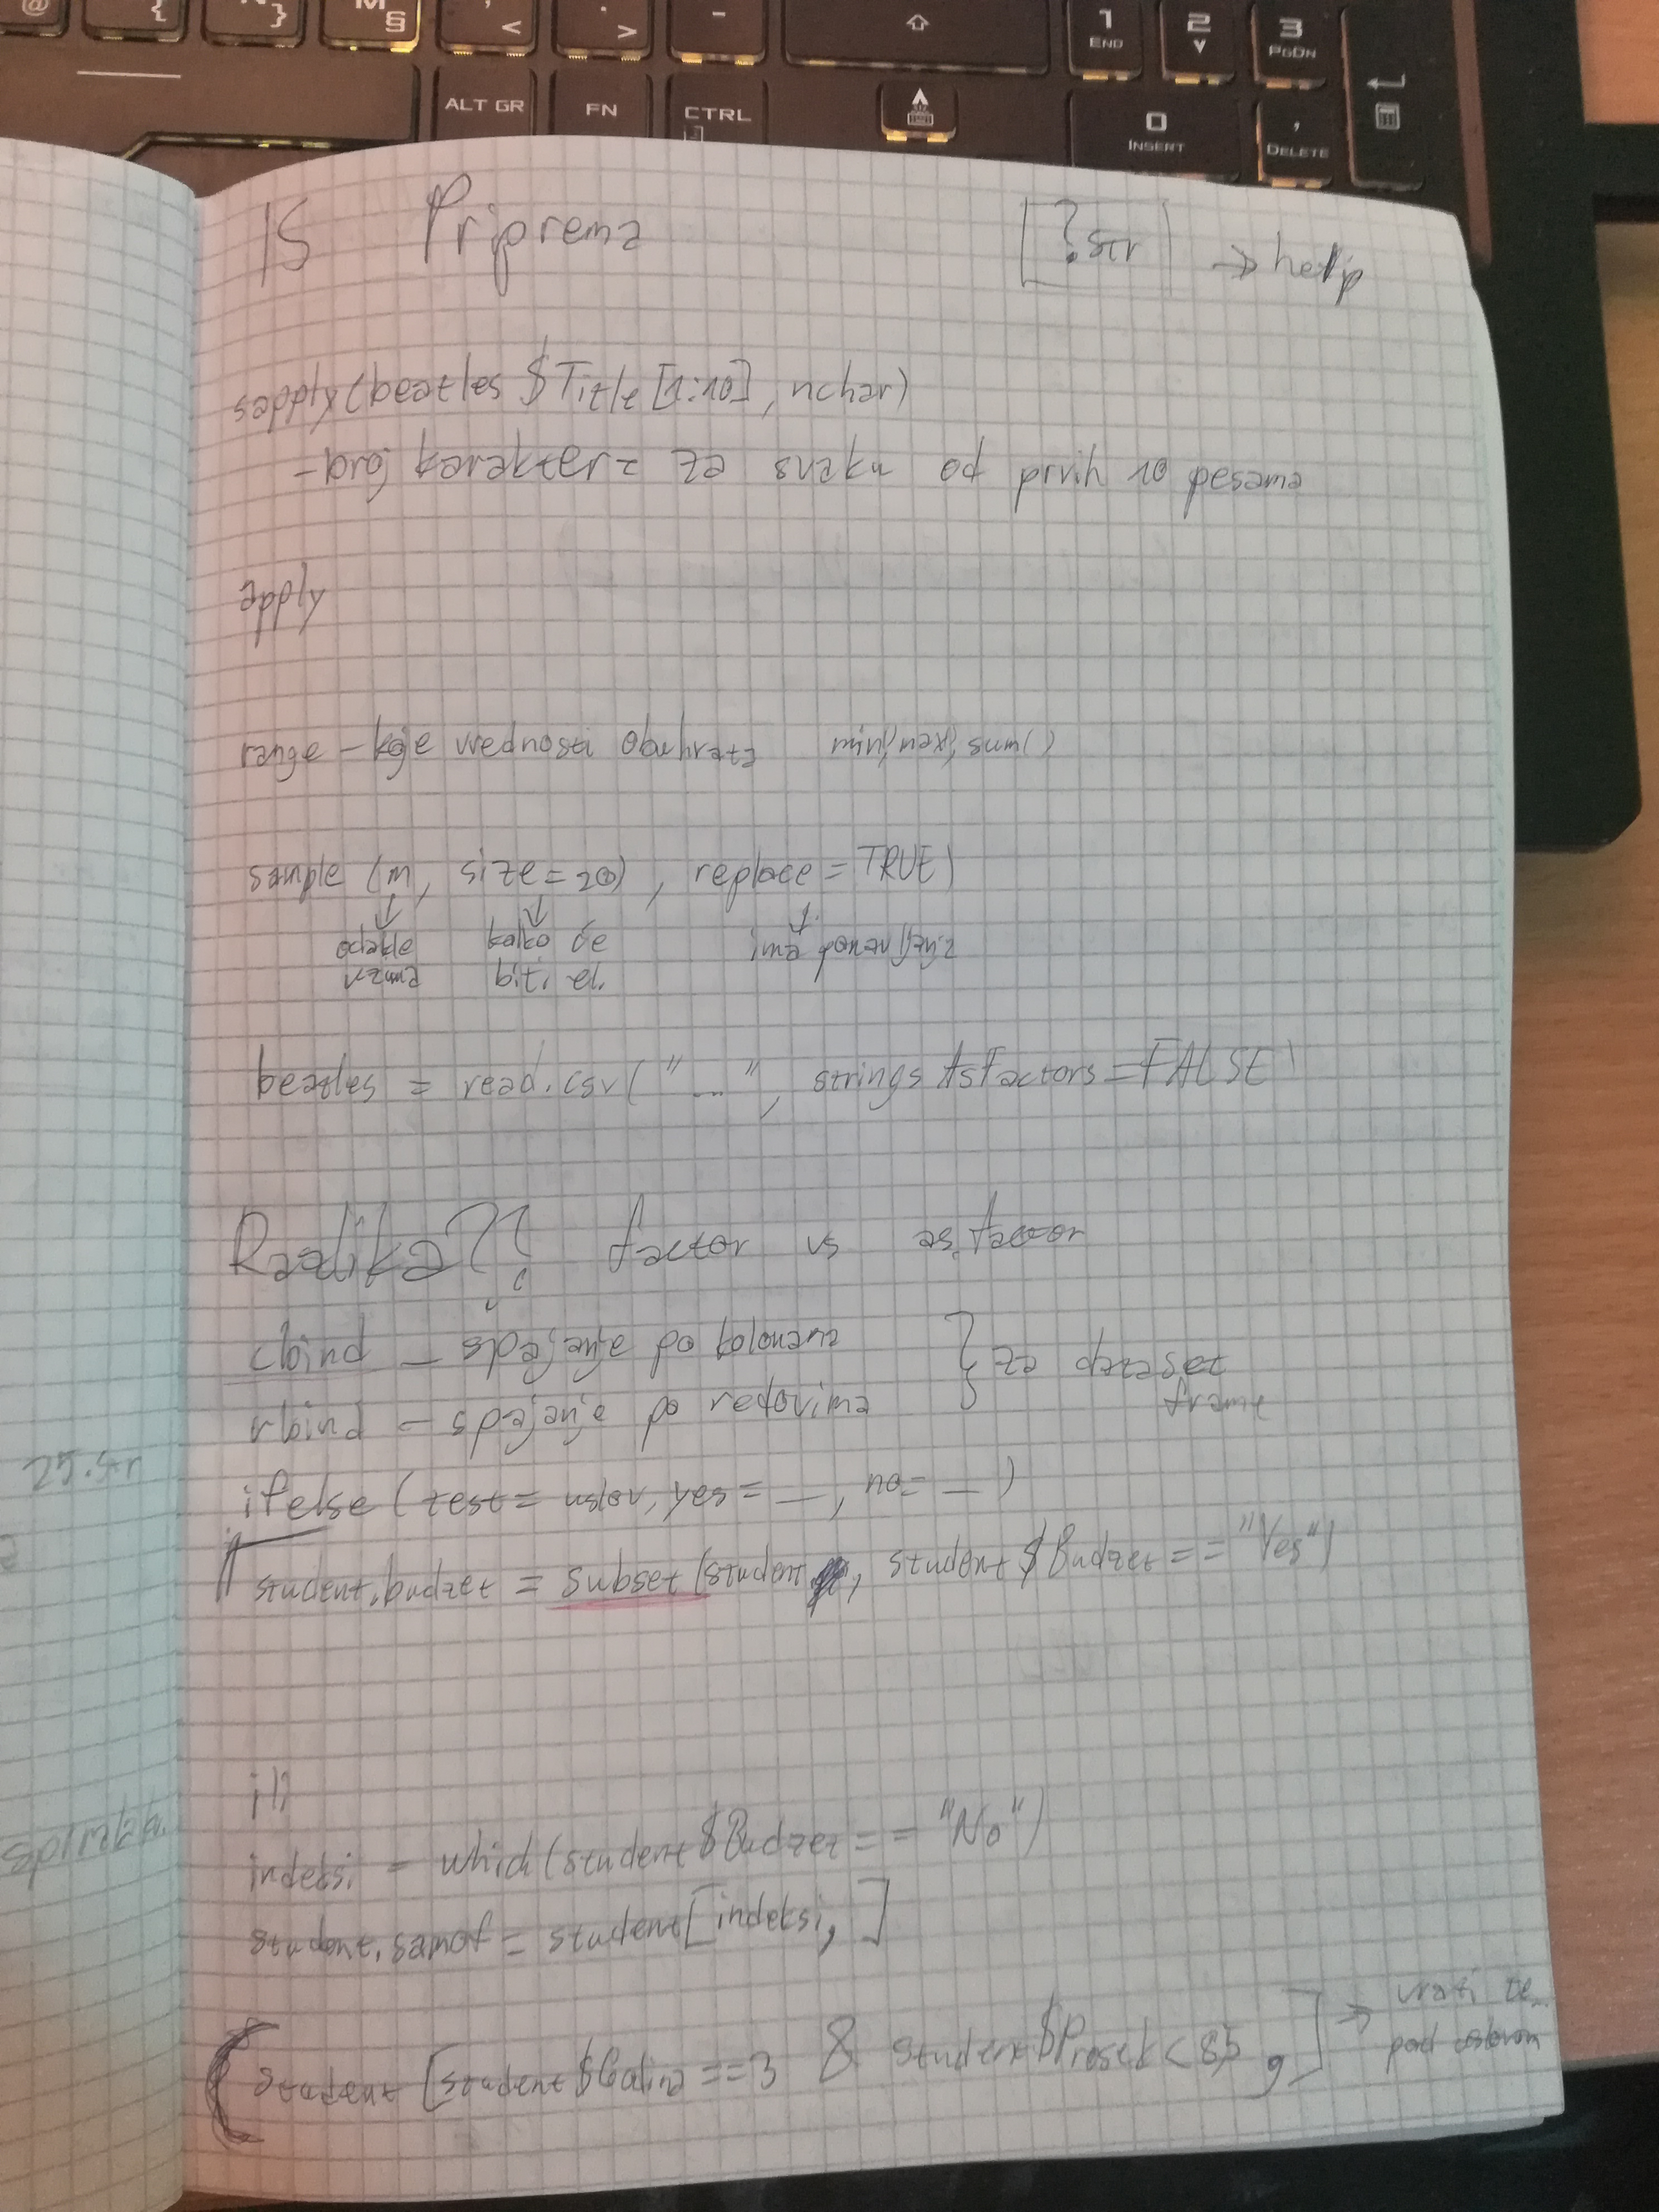 M
§
< 
>
-
1
END
2
3
PGDN
ALT GR
FN
CTRL
0
INSERT
,
DELETE
IS Priprema
?str → help
sapply(beatles$Title[1:10], nchar)
- broj karaktera za svaku od prvih 10 pesama
apply
range - koje vrednosti obuhvata min, max, sum()
sample (m, size=20), replace=TRUE)
odakle kolko će ima ponavljanja
uzima biti el.
beatles = read.csv("...", stringsAsFactors=FALSE)
Razlika?? factor vs as.factor
cbind - spajanje po kolonama
rbind - spajanje po redovima
} za dataset
frame
25.str
ifelse (test= uslov, yes= _, no= _)
student.budzet = subset(student, student$Budzet=="Yes")
ili
indeksi = which(student$Budzet == "No")
student.samof = student[indeksi,]
student [student$Godina==3 & student$Prosek<8.5,] → vrati
pod uslovom